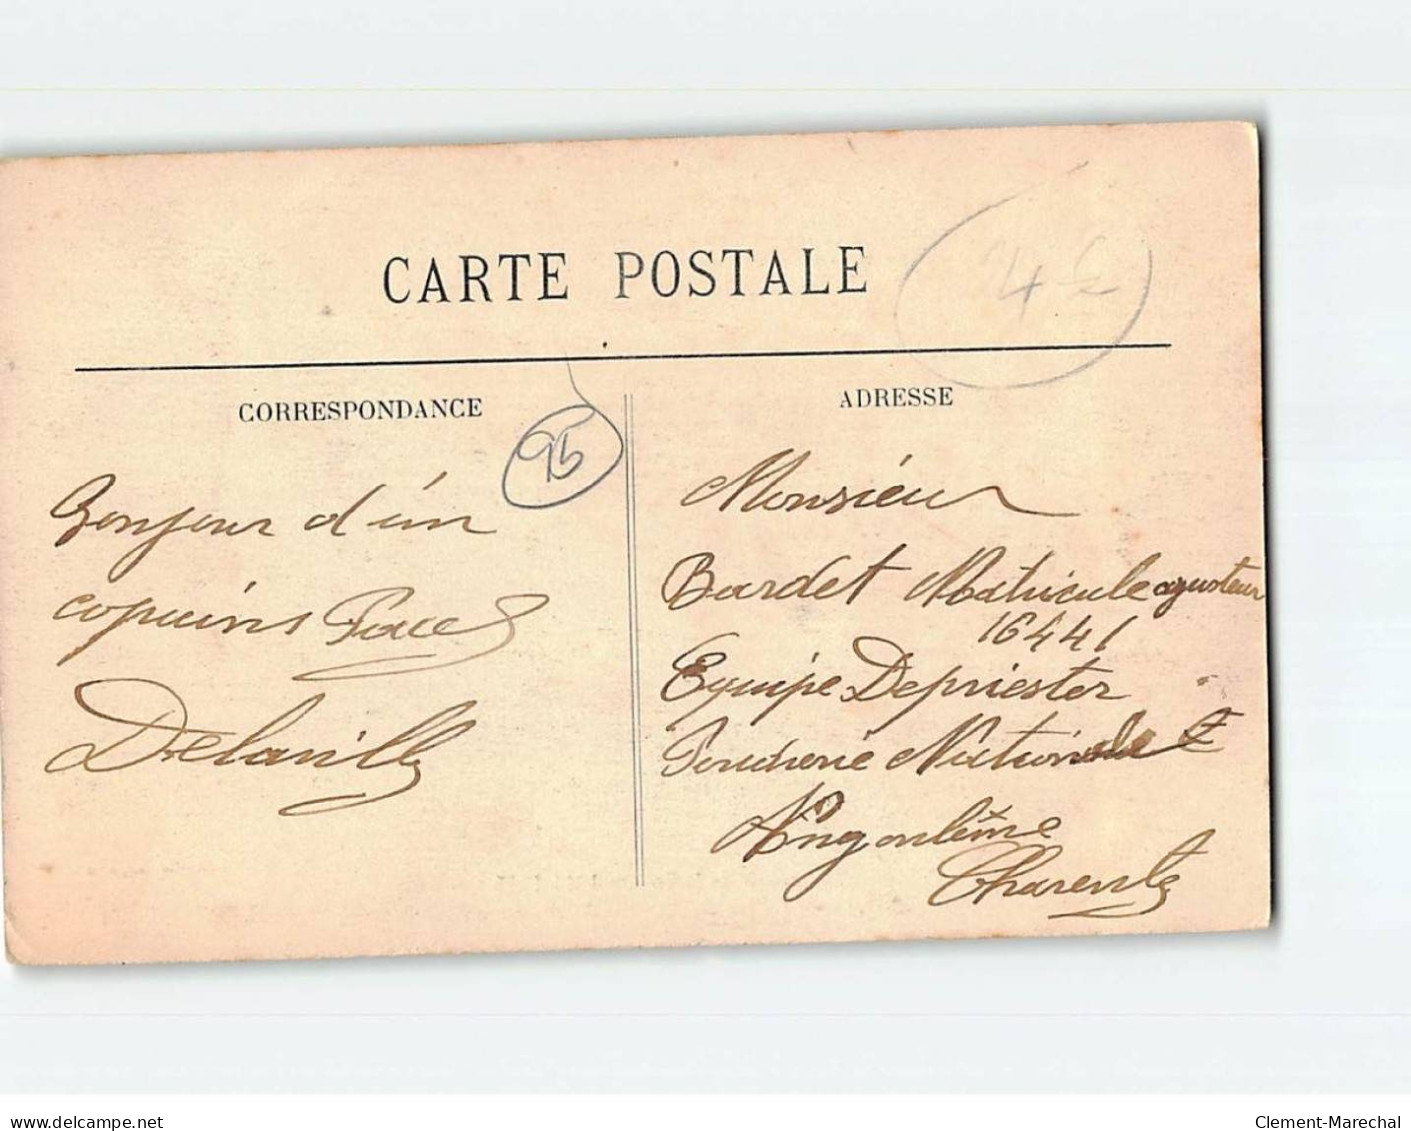 CARTE POSTALE
4 €
CORRESPONDANCE
95
ADRESSE
Bonjour d'un
copains
Delaville
Monsieur
Bardet Matricule ajusteur
16441
Equipe Depriester
Poudrerie Nationale
Angoulême
Charente
delcampe.net
Clement-Marechal